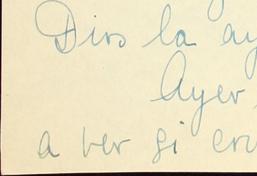 Dios la ay
Ayer
a ver si